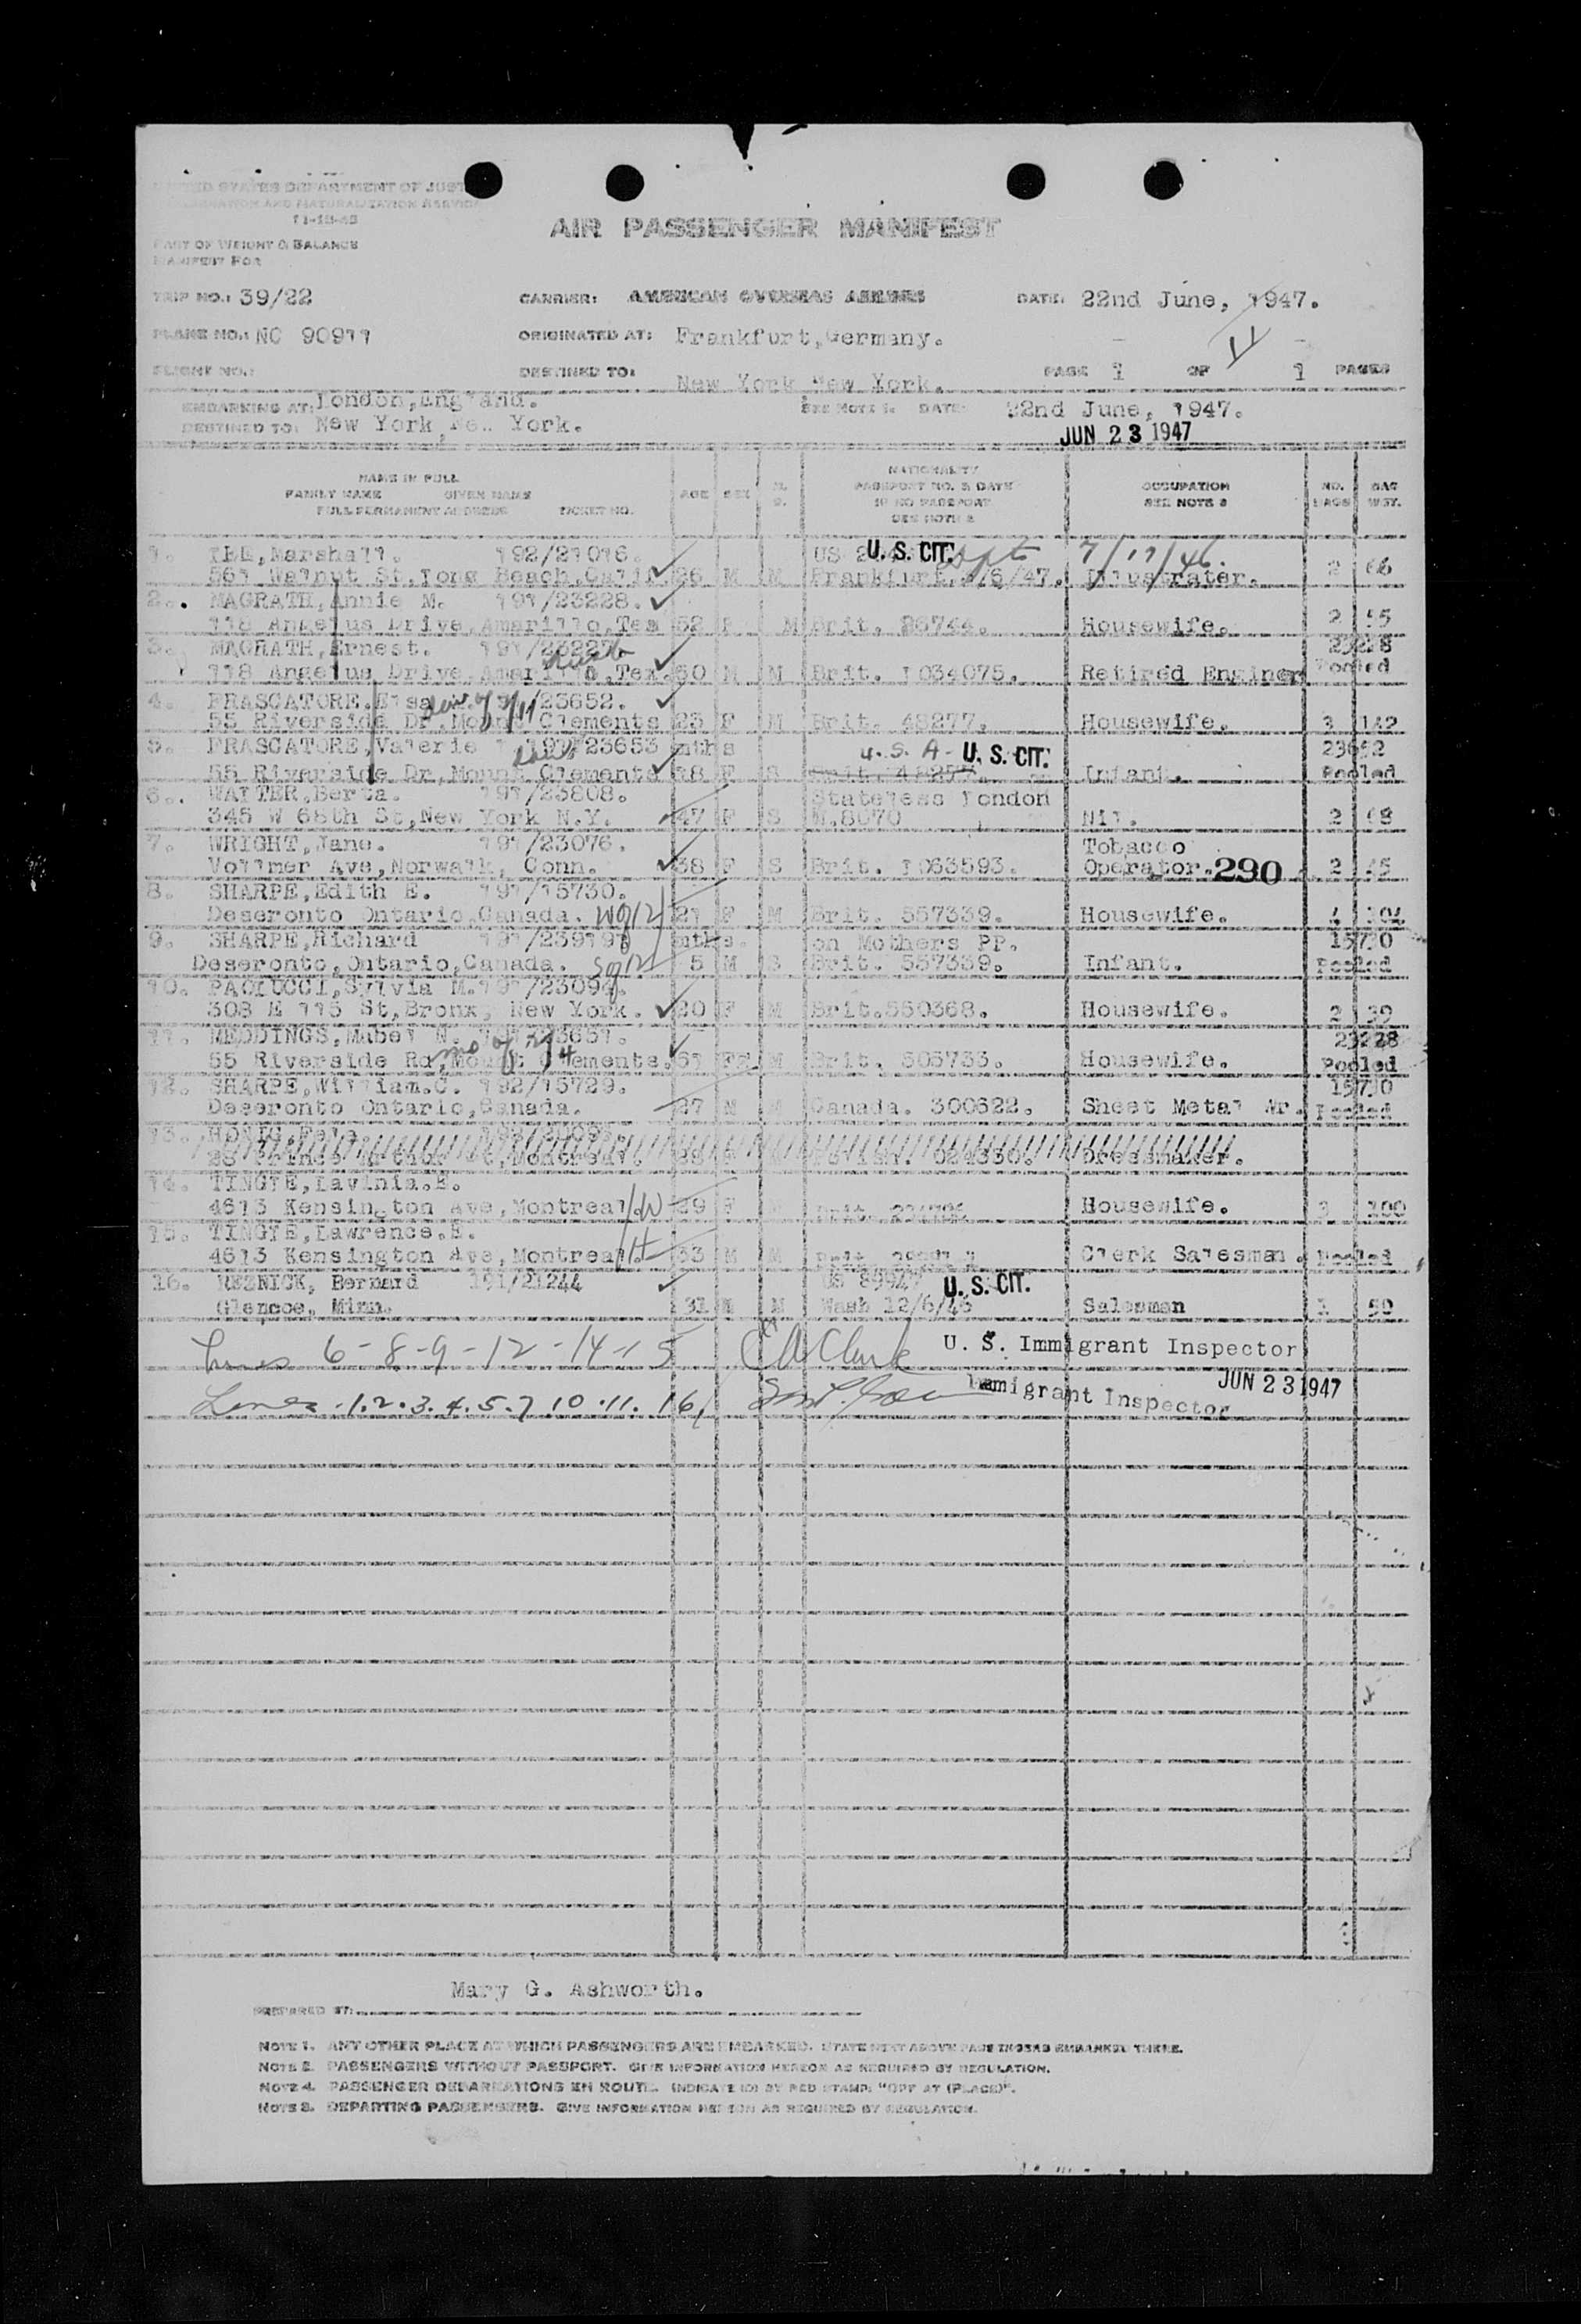 UNITED STATES DEPARTMENT OF JUST
IMMIGRATION AND NATURALIZATION SERVICE
11-15-45
AIR PASSENGER MANIFEST
PART OF WEIGHT & BALANCE
MANIFEST FOR
TRIP NO.: 39/22 CARRIER: AMERICAN OVERSEAS AIRLINES DATE: 22nd June, 1947.
PLANE NO.: NC 90911 ORIGINATED AT: Frankfurt, Germany.
FLIGHT NO.: DESTINED TO: New York New York. PAGE 1 OF 1 PAGES
EMBARKING AT: London, England. SEE NOTE 1. DATE: 22nd June, 1947.
DESTINED TO: New York New York.
JUN 23 1947
NAME IN FULL
FAMILY NAME GIVEN NAME
FULL PERMANENT ADDRESS TICKET NO.
AGE SEX M. S.
NATIONALITY
PASSPORT NO. & DATE
IF NO PASSPORT
SEE NOTE 2
OCCUPATION
SEE NOTE 3
NO. BAGS
BAG WGT.
1. Marshall. 192/21016. US U.S. CIT. 7/17/46.
561 Walnut St, Long Beach, Calif. 26 M M Frankfurt, /6/47. Illustrater. 2 66
2. MAGRATH, Annie M. 191/23228.
118 Angelus Drive, Amarillo, Tex 52 F M Brit. 26744. Housewife. 2 55
3. MAGRATH, Ernest. 191/23227 23228
118 Angelus Drive, Amarillo, Tex. 60 M M Brit. 1034075. Retired Enginer Pooled
4. FRASCATORE, Elsa 23652.
55 Riverside Dr. Mount Clements 23 F M Brit. 48277. Housewife. 3 142
5. FRASCATORE, Valerie 191/23653 mths U.S.A. U.S. CIT. 23652
55 Riverside Dr, Mount Clements 18 F S Infant. Pooled
6. WALTER, Berta. 191/23808. Stateless London
345 W 68th St, New York N.Y. 47 F S M.8070 Nil. 2 68
7. WRIGHT, Jane. 191/23076. Tobacco
Vollmer Ave, Norwalk, Conn. 38 F S Brit. 1063593. Operator. 290 2 45
8. SHARPE, Edith E. 191/15730.
Deseronto Ontario, Canada. W of 12 21 F M Brit. 557339. Housewife. 4 104
9. SHARPE, Richard 191/23919 mths. on Mothers PP. 15730
Deseronto, Ontario, Canada. S of 12 5 M S Brit. 557339. Infant. Pooled
10. PAOLUCCI, Sylvia M. 191/23094.
308 E 115 St, Bronx, New York. 20 F M Brit. 550368. Housewife. 2 39
11. MEDDINGS, Mabel N. 23651. 23228
55 Riverside Rd, Mount Clements. 61 F M Brit. 505733. Housewife. Pooled
12. SHARPE, William.C. 192/15729. 15730
Deseronto Ontario, Canada. 27 M M Canada. 300622. Sheet Metal Wr. Pooled
13. HONIG,
Montreal. Dressmaker.
14. TINGLE, Lavinia.E.
4613 Kensington Ave, Montreal W 29 F M Housewife. 3 100
15. TINGLE, Lawrence.E.
4613 Kensington Ave, Montreal H 33 M M Clerk Salesman. Pooled
16. REZNICK, Bernard 191/21244 US U.S. CIT.
Glencoe, Minn. 31 M M Wash 12/6/46 Salesman 1 50
Lines 6-8-9-12-14-15 C A Clark U. S. Immigrant Inspector
Lines 1.2.3.4.5.7 10.11.16 Immigrant Inspector JUN 23 1947
Mary G. Ashworth.
PREPARED BY:
NOTE 1. ANY OTHER PLACE AT WHICH PASSENGERS ARE EMBARKED. STATE NEXT ABOVE PASSENGERS EMBARKED THERE.
NOTE 2. PASSENGERS WITHOUT PASSPORT. GIVE INFORMATION HEREON AS REQUIRED BY REGULATION.
NOTE 4. PASSENGER DEBARKATIONS EN ROUTE. INDICATE (D) BY RED STAMP: "OFF AT (PLACE)".
NOTE 3. DEPARTING PASSENGERS. GIVE INFORMATION HEREON AS REQUIRED BY REGULATION.